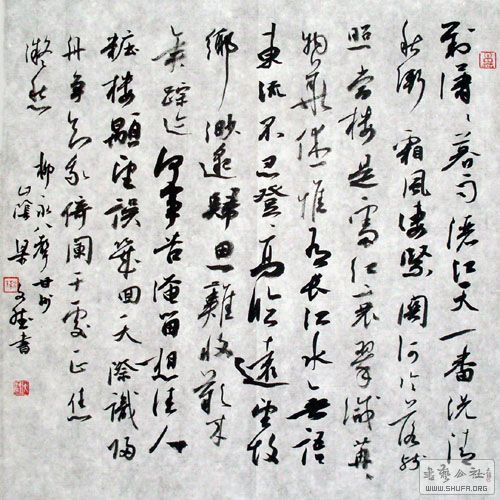 對瀟瀟暮雨灑江天一番洗清
秋漸霜風凄緊關河冷落殘
照當樓是處紅衰翠減苒苒
物華休惟有長江水無語
東流不忍登高臨遠望故
鄉渺邈歸思難收歎年
來踪迹何事苦淹留想佳人
妝樓顒望誤幾回天際識歸
舟爭知我倚闌干處正恁
凝愁 柳永八聲甘州
山陰梁 書
書藝公社
WWW.SHUFA.ORG